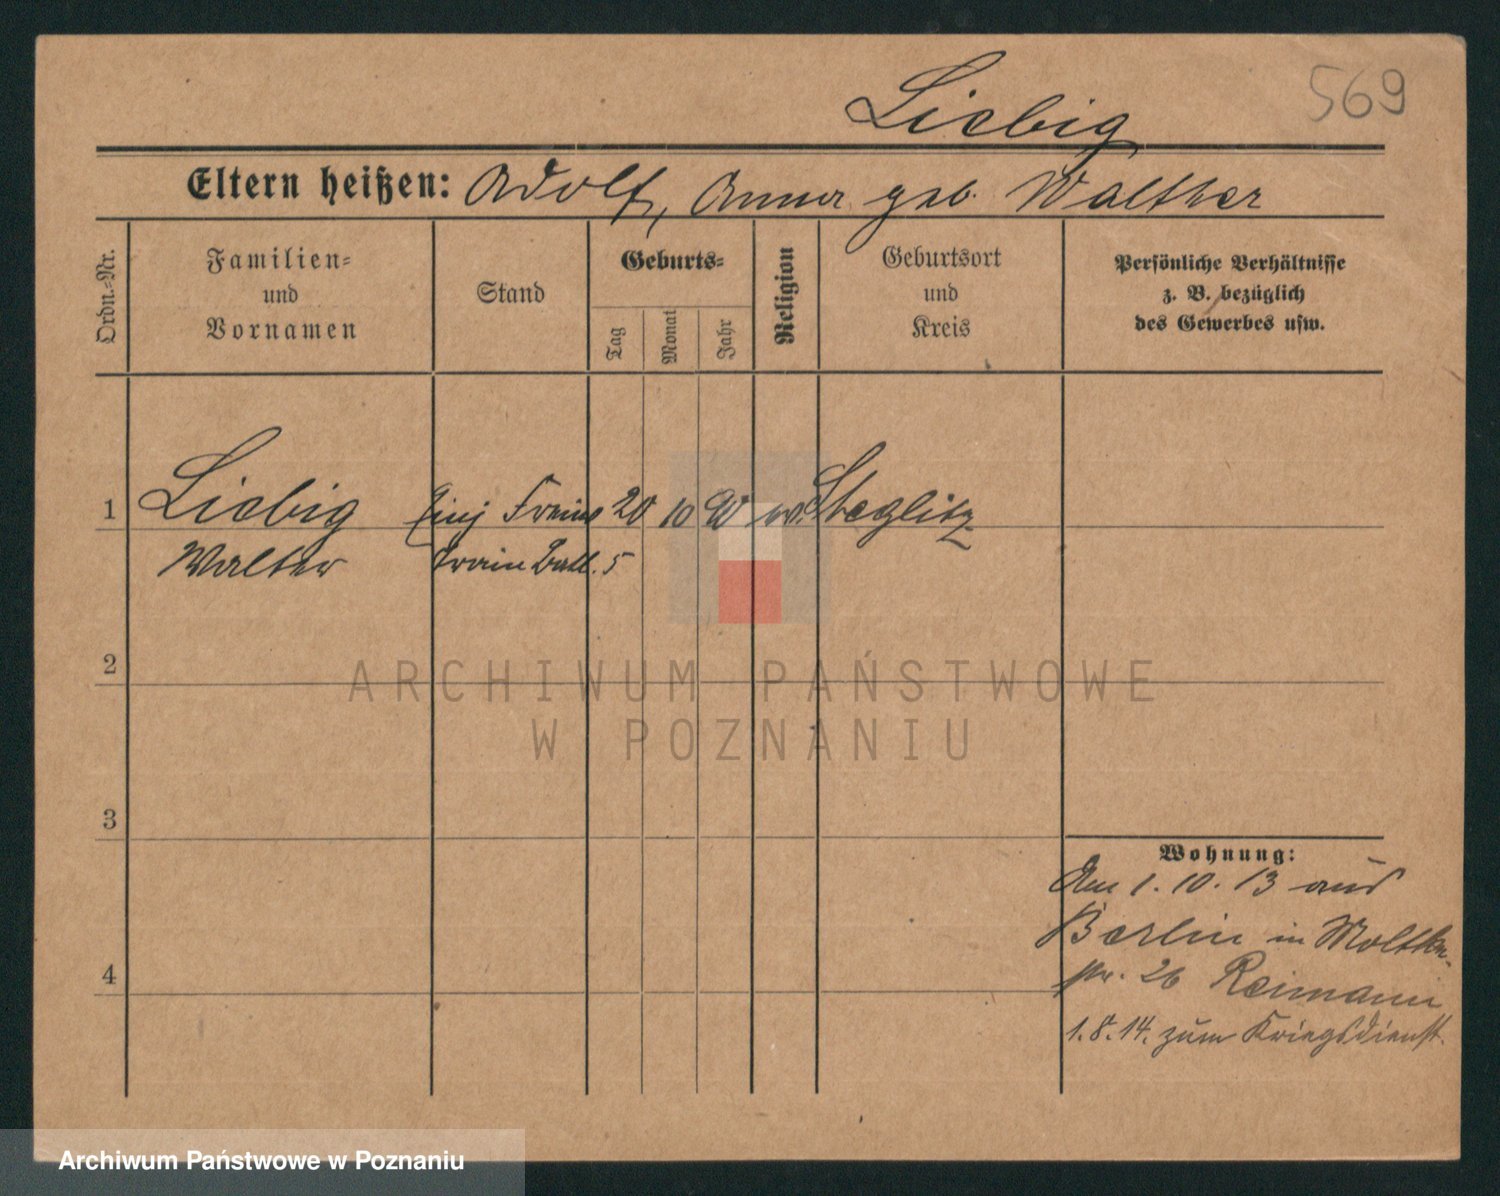 569
Liebig
Eltern heißen: Adolf, Anna geb. Walther
Ordn.-Nr.
Familien-
und
Vornamen
Stand
Geburts-
Tag
Monat
Jahr
Religion
Geburtsort
und
Kreis
Persönliche Verhältnisse
z. B. bezüglich
des Gewerbes usw.
1 Liebig Einj Freiw 20 10 90 ev. Steglitz
Walter Train Batl. 5
2
3
4
Wohnung:
Am 1. 10. 13 aus
Berlin in Moltke-
str. 26 Reimann
1. 8. 14. zum Kriegsdienst.
ARCHIWUM PAŃSTWOWE
W POZNANIU
Archiwum Państwowe w Poznaniu